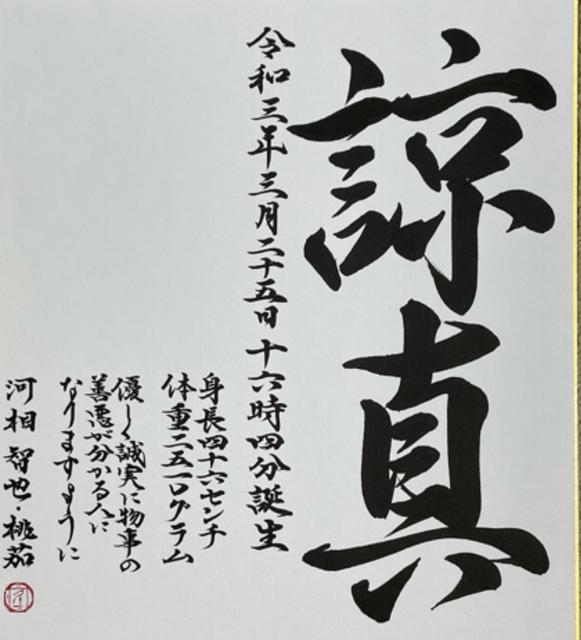 諒真
令和三年三月二十五日十六時四分誕生
身長四十六センチ
体重二五一〇グラム
優しく誠実に物事の
善悪が分かる人に
なりますように
河相 智也・桃茄